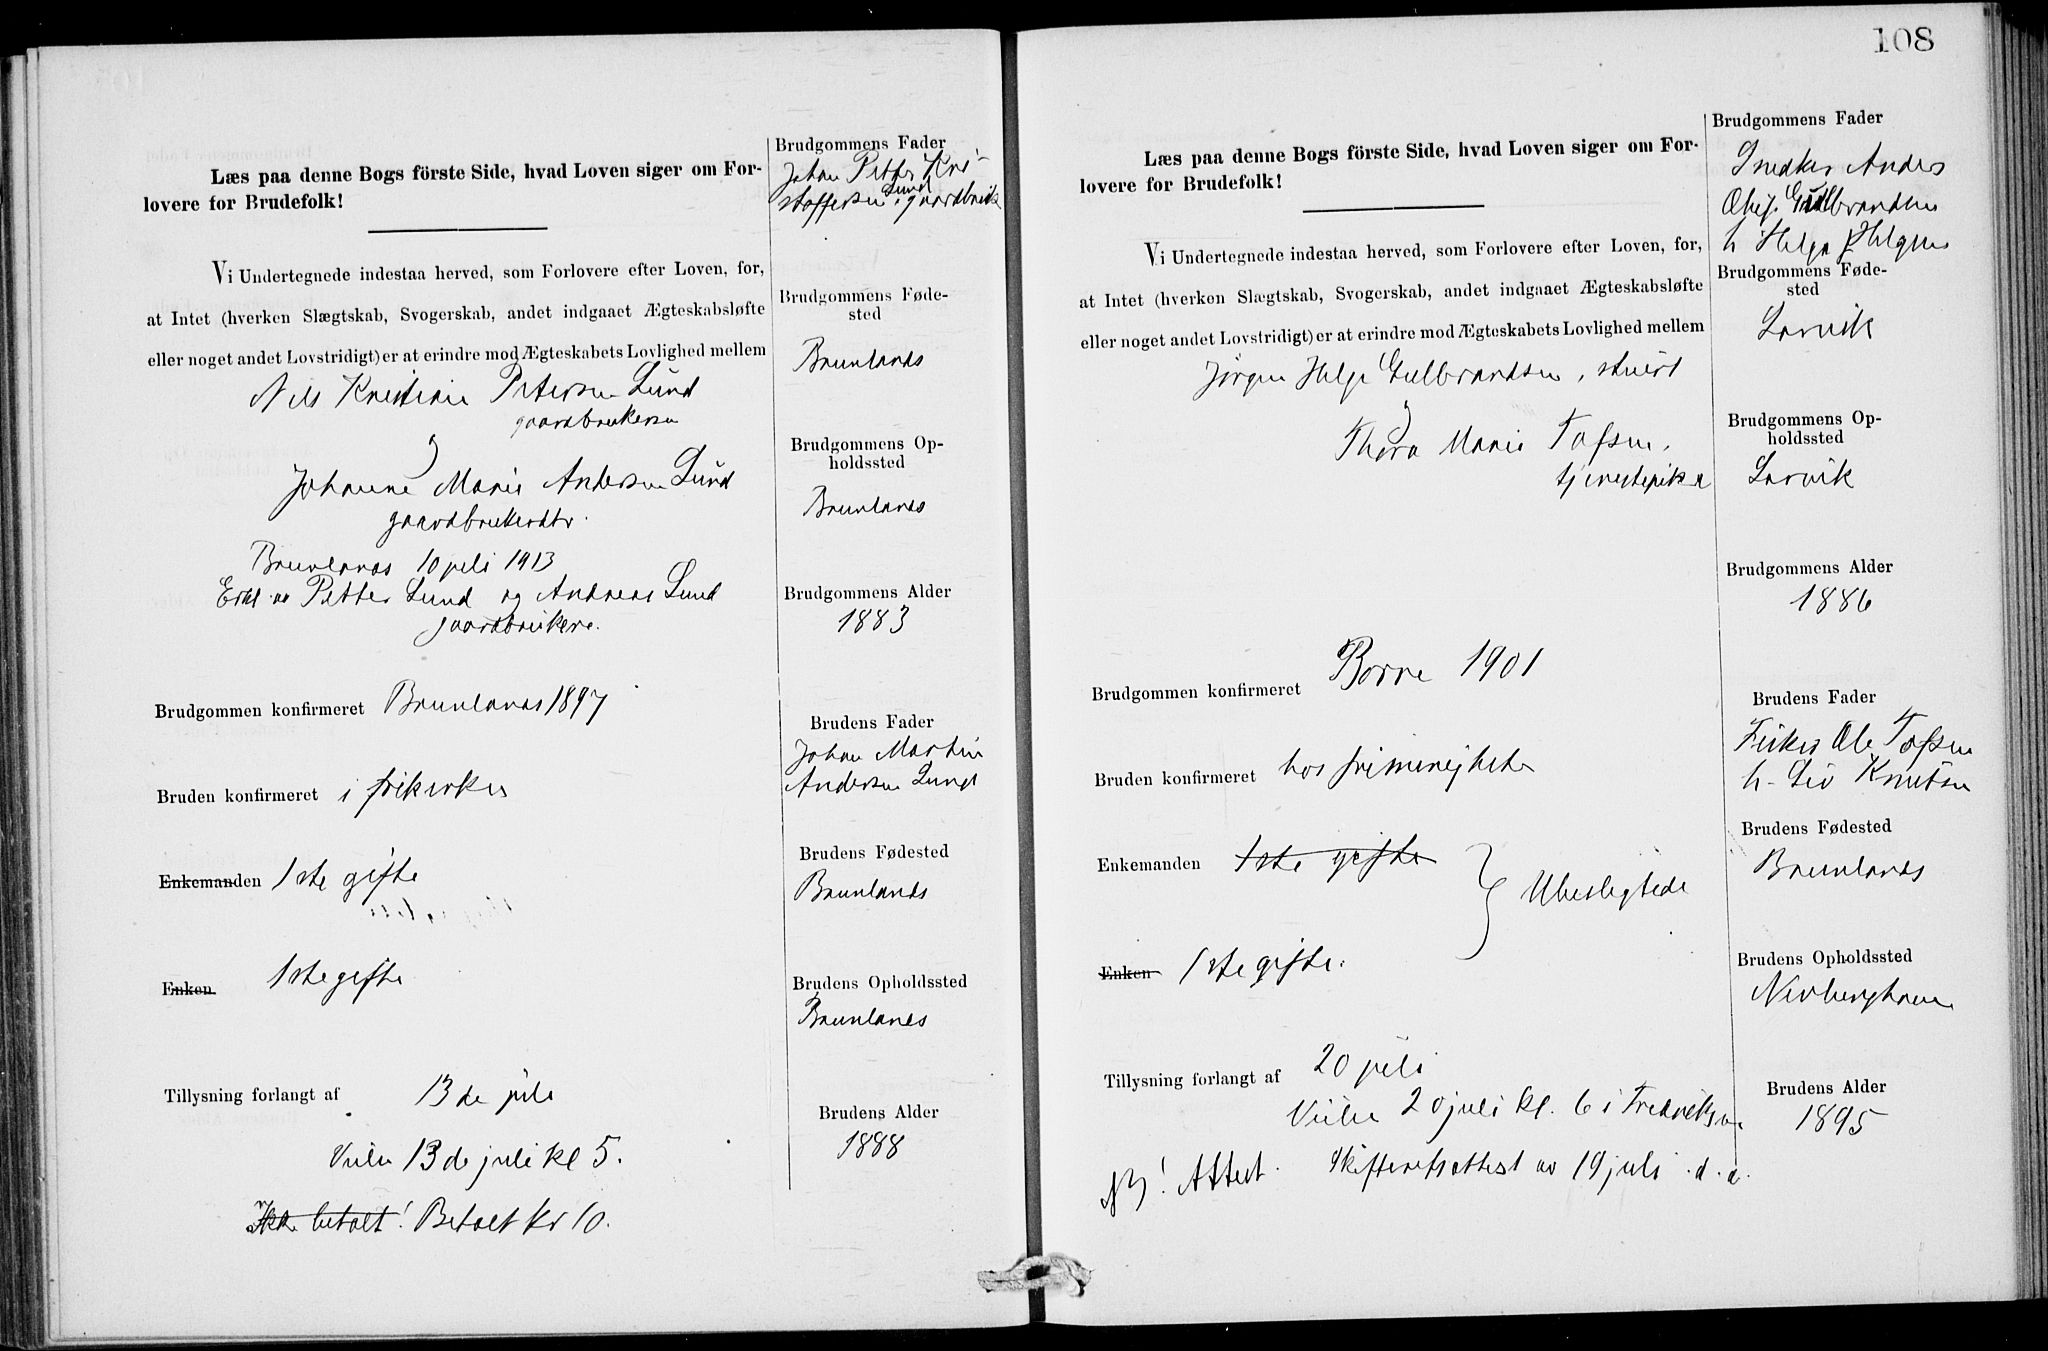 Læs paa denne Bogs förste Side, hvad Loven siger om For-
lovere for Brudefolk!
Vi Undertegnede indestaa herved, som Forlovere efter Loven, for,
at Intet (hverken Slægtskab, Svogerskab, andet indgaaet Ægteskabsløfte
eller noget andet Lovstridigt) er at erindre mod Ægteskabets Lovlighed mellem
Nils Kristian Petersen Lund
gaardbrukersøn
og
Johanne Marie Andersen Lund
gaardbrukerdtr.
Brunlanes 10 juli 1913
Erkl. av Petter Lund og Andreas Lund
gaardbrukere.
Brudgommen konfirmeret Brunlanes 1897
Bruden konfirmeret i frikirken
Enkemanden 1ste gifte
Enken 1ste gifte
Tillysning forlangt af 13de juli
Vielse 13de juli kl 5.
Ikke betalt! Betalt kr 10.
Brudgommens Fader
Johan Petter Kri-
stoffersen Lund, gaardbruk
Brudgommens Føde-
sted
Brunlanes
Brudgommens Op-
holdssted
Brunlanes
Brudgommens Alder
1883
Brudens Fader
Johan Martin
Andersen Lund
Brudens Fødested
Brunlanes
Brudens Opholdssted
Brunlanes
Brudens Alder
1888
108
Læs paa denne Bogs förste Side, hvad Loven siger om For-
lovere for Brudefolk!
Vi Undertegnede indestaa herved, som Forlovere efter Loven, for,
at Intet (hverken Slægtskab, Svogerskab, andet indgaaet Ægteskabsløfte
eller noget andet Lovstridigt) er at erindre mod Ægteskabets Lovlighed mellem
Jørgen Helge Gulbrandsen, stuert
og
Thora Marie Tofsen,
tjenestepike
Brudgommen konfirmeret Borre 1901
Bruden konfirmeret hos frimenigheten
Enkemanden 1ste gifte
Ubeslegtede
Enken 1ste gifte.
Tillysning forlangt af 20 juli
Vielse 20 juli kl. 6 i Fredriksvern
NB! Attest. Skifteretsattest av 19 juli d. a.
Brudgommens Fader
Snedker Anders
Olaf Gulbrandsen
h Helga Helgesen
Brudgommens Føde-
sted
Larvik
Brudgommens Op-
holdssted
Larvik
Brudgommens Alder
1886
Brudens Fader
Fisker Ole Tofsen
h. Liv Knutsen
Brudens Fødested
Brunlanes
Brudens Opholdssted
Nevlunghavn
Brudens Alder
1895